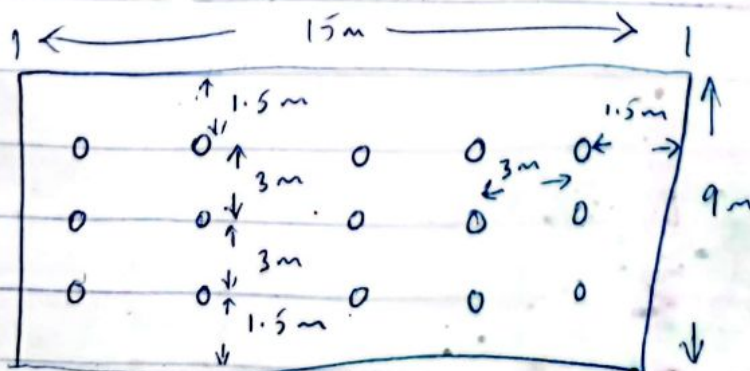 15m
1.5m
1.5m
3m
3m
9m
3m
1.5m